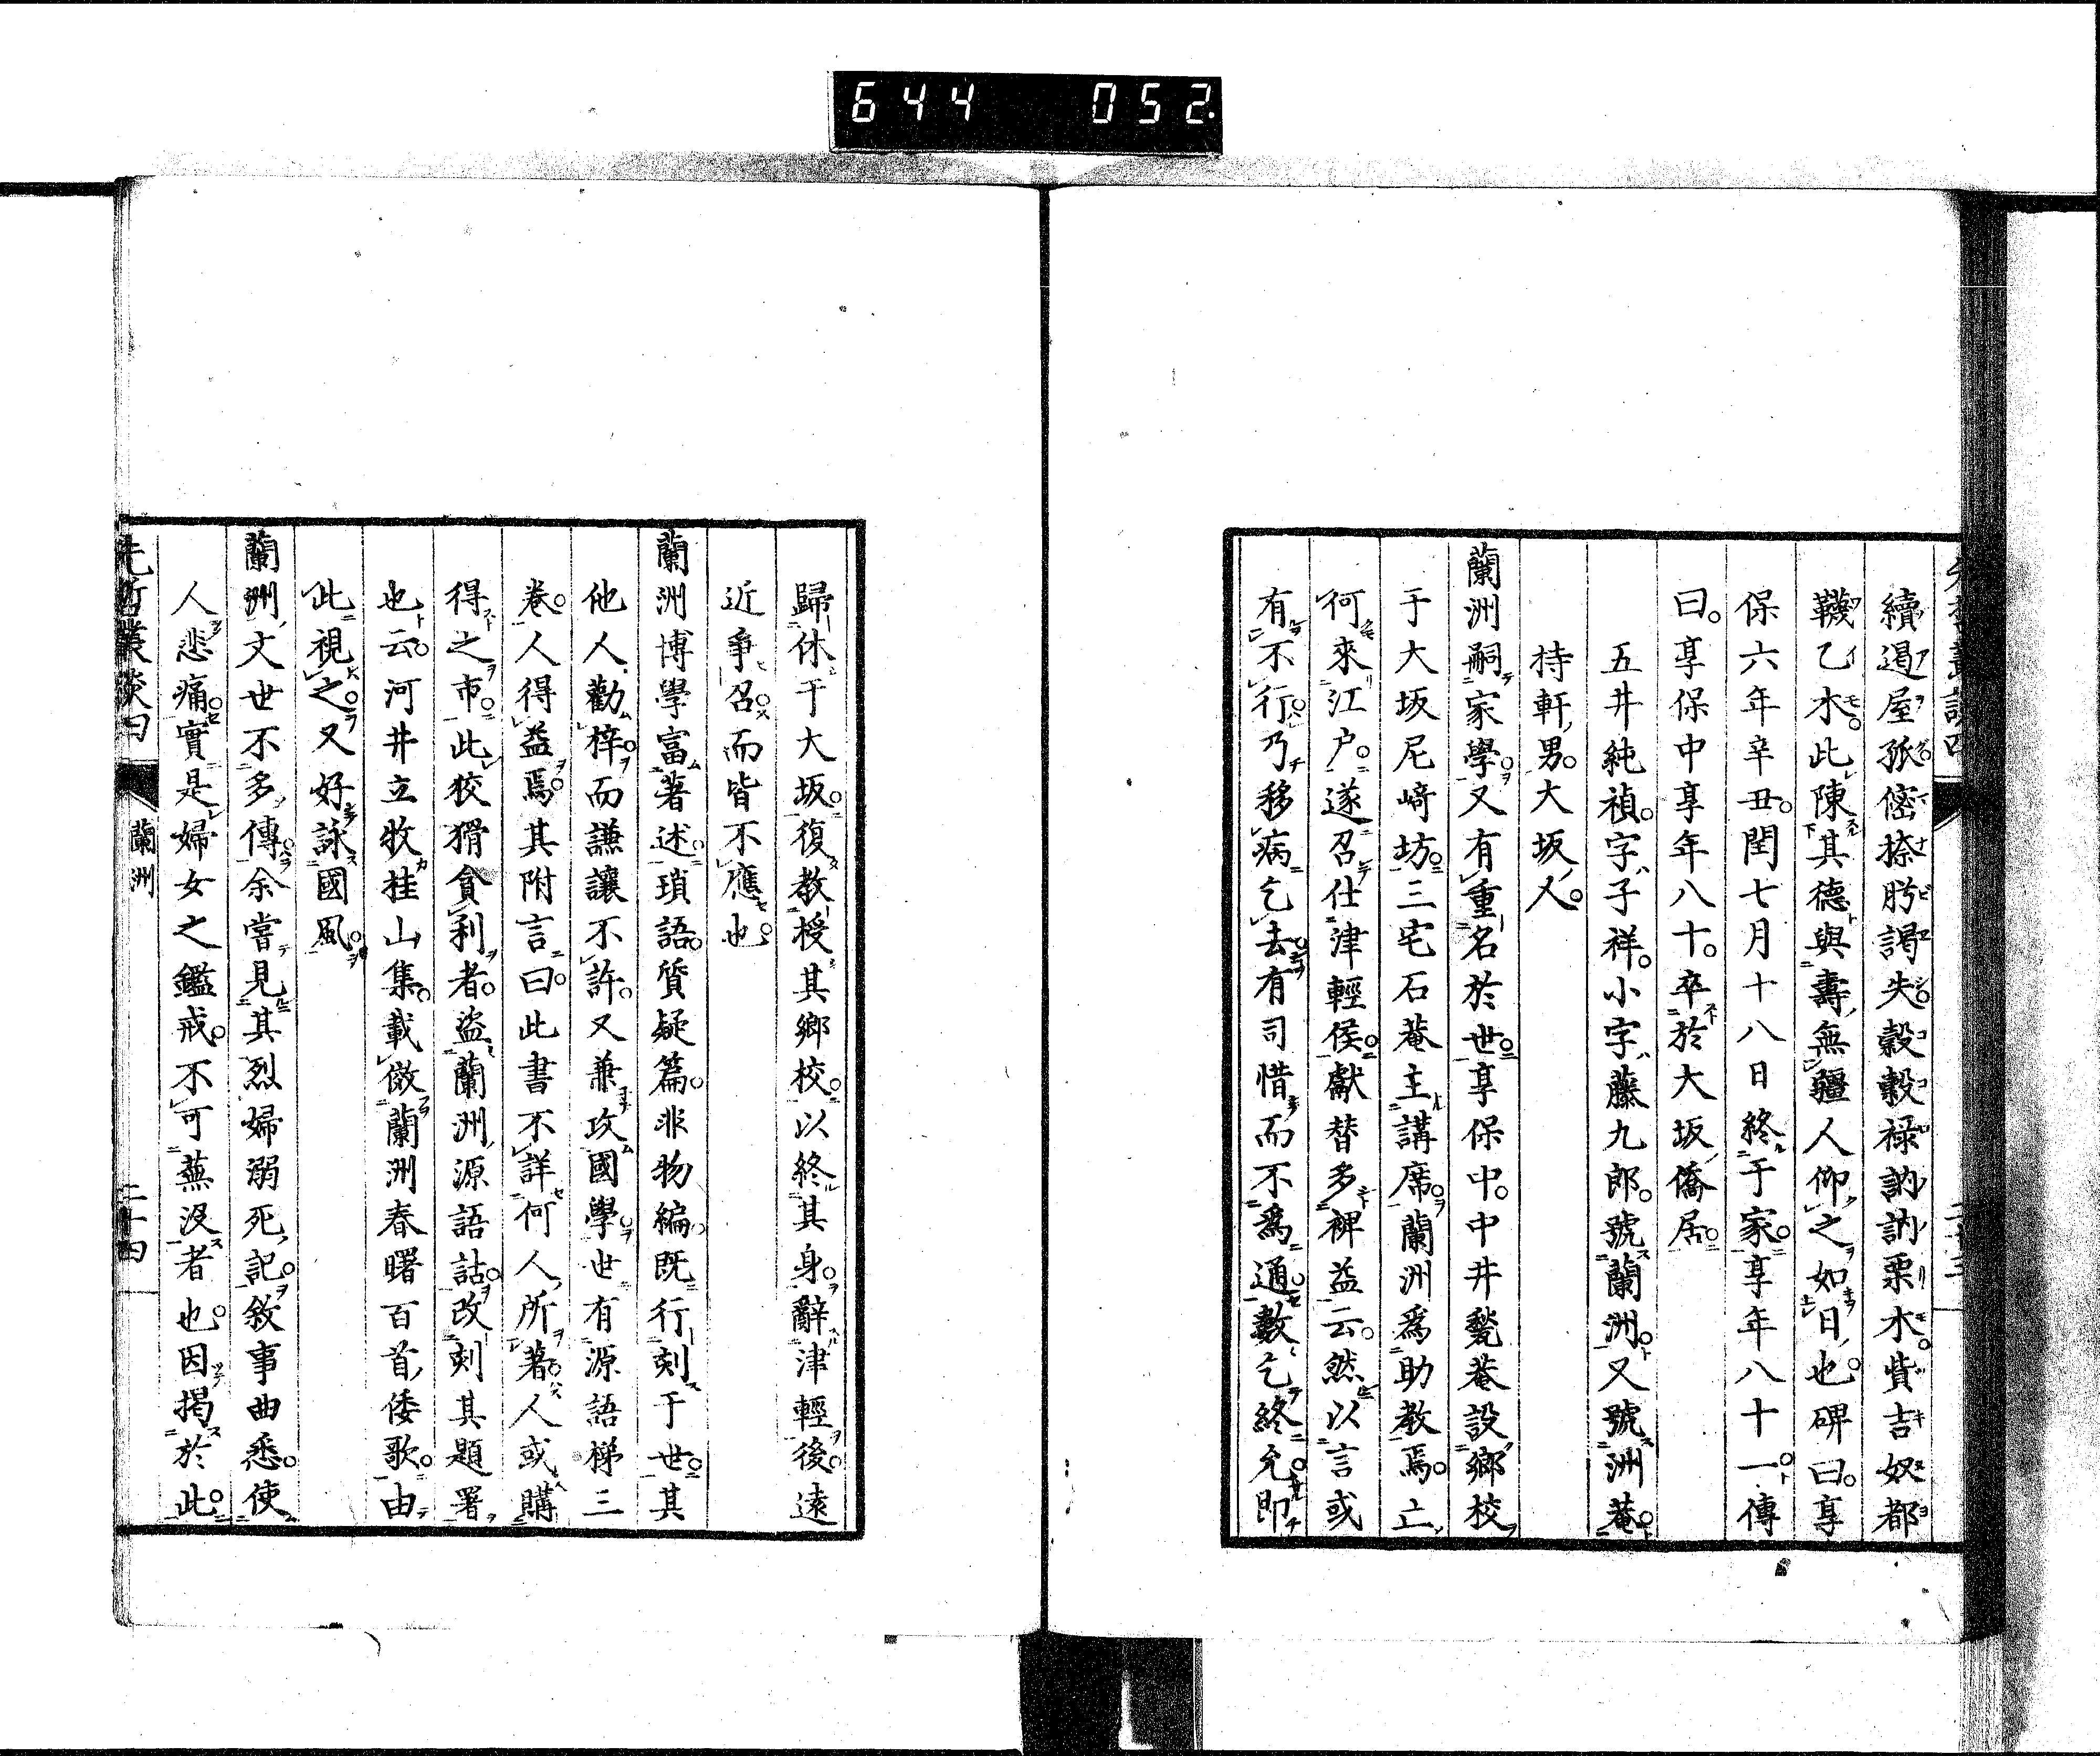 644 052
續遏屋孤窓捺肹謁失穀穀禄訥訥栗木貲吉奴都
韈乙木此陳其德與壽無疆人仰之如日也碑曰享
保六年辛丑閏七月十八日終于家享年八十一傳
曰享保中享年八十卒於大坂僑居
五井純禎字子祥小字藤九郎號蘭洲又號洲菴
持軒男大坂人
蘭洲嗣家學又有重名於世享保中中井甃菴設鄉校
于大坂尼﨑坊三宅石菴主講席蘭洲爲助教焉亡
何來江户遂召仕津輕侯獻替多裨益云然以言或
有不行乃移病乞去有司惜而不爲通數乞終允即
歸休于大坂復教授其鄉校以終其身辭津輕後遠
近爭召而皆不應也
蘭洲博學富著述瑣語質疑篇非物編既行刻于世其
他人勸梓而謙讓不許又兼攻國學世有源語梯三
卷人得益焉其附言曰此書不詳何人所著人或購
得之市此狡猾貪利者盜蘭洲源語詁改刻其題署
也云河井立牧桂山集載倣蘭洲春曙百首倭歌由
此視之又好詠國風
蘭洲文世不多傳余嘗見其烈婦溺死記敘事曲悉使
人悲痛實是婦女之鑑戒不可蕪沒者也因揭於此
先哲叢談四
蘭洲
二十四